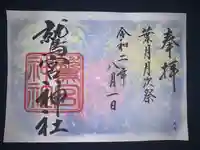 奉拝
葉月月次祭
令和二年
八月一日
鷲宮神社